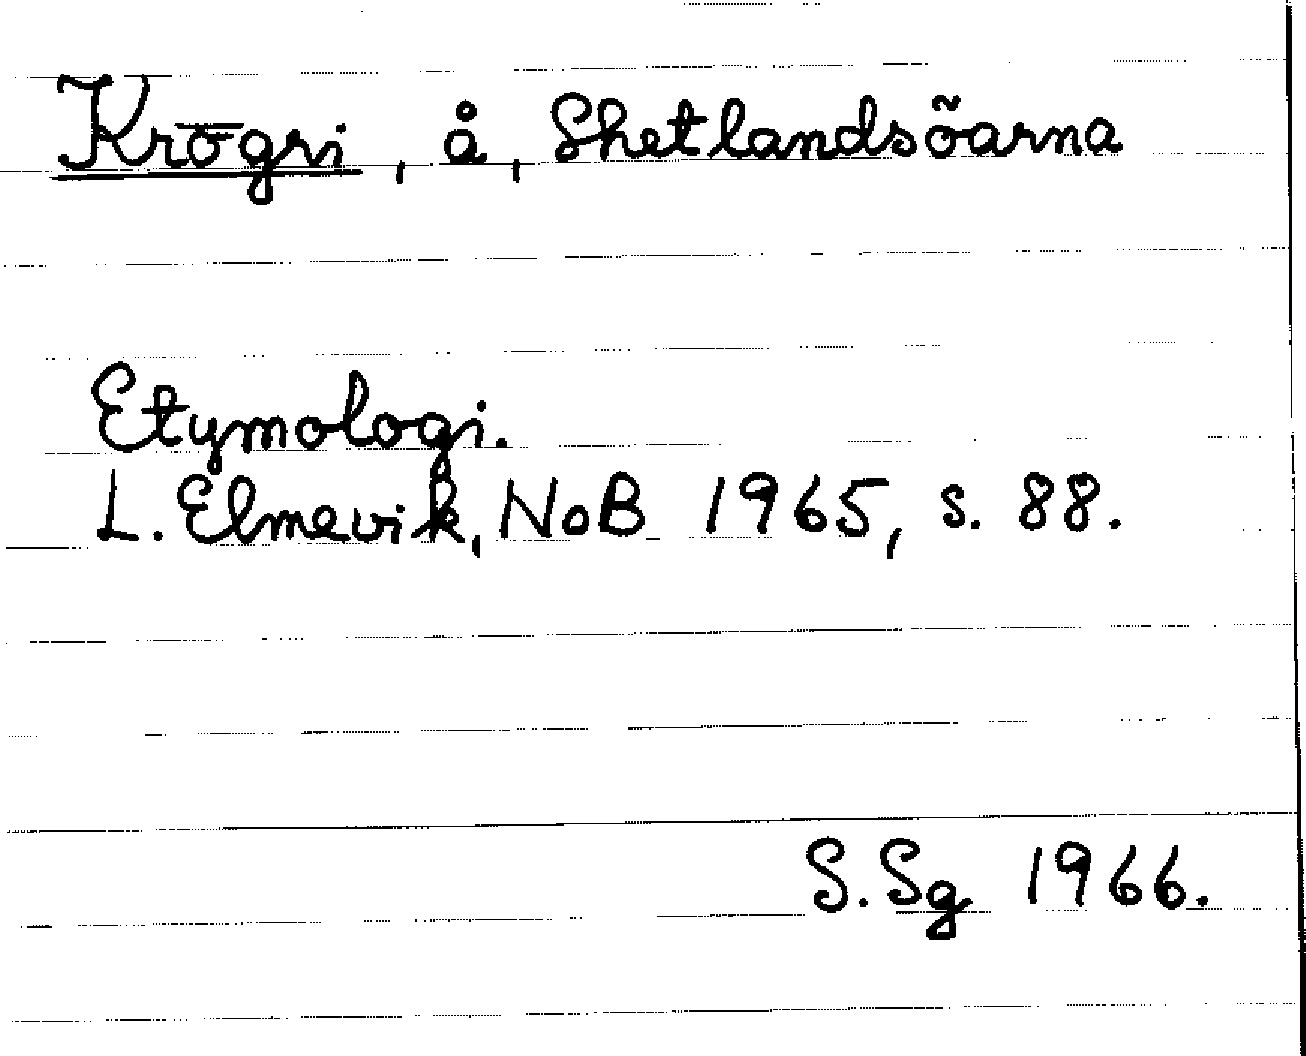 Krōgri, å, Shetlandsöarna
Etymologi.
L. Elmevik, NoB 1965, s. 88.
S. Sg 1966.